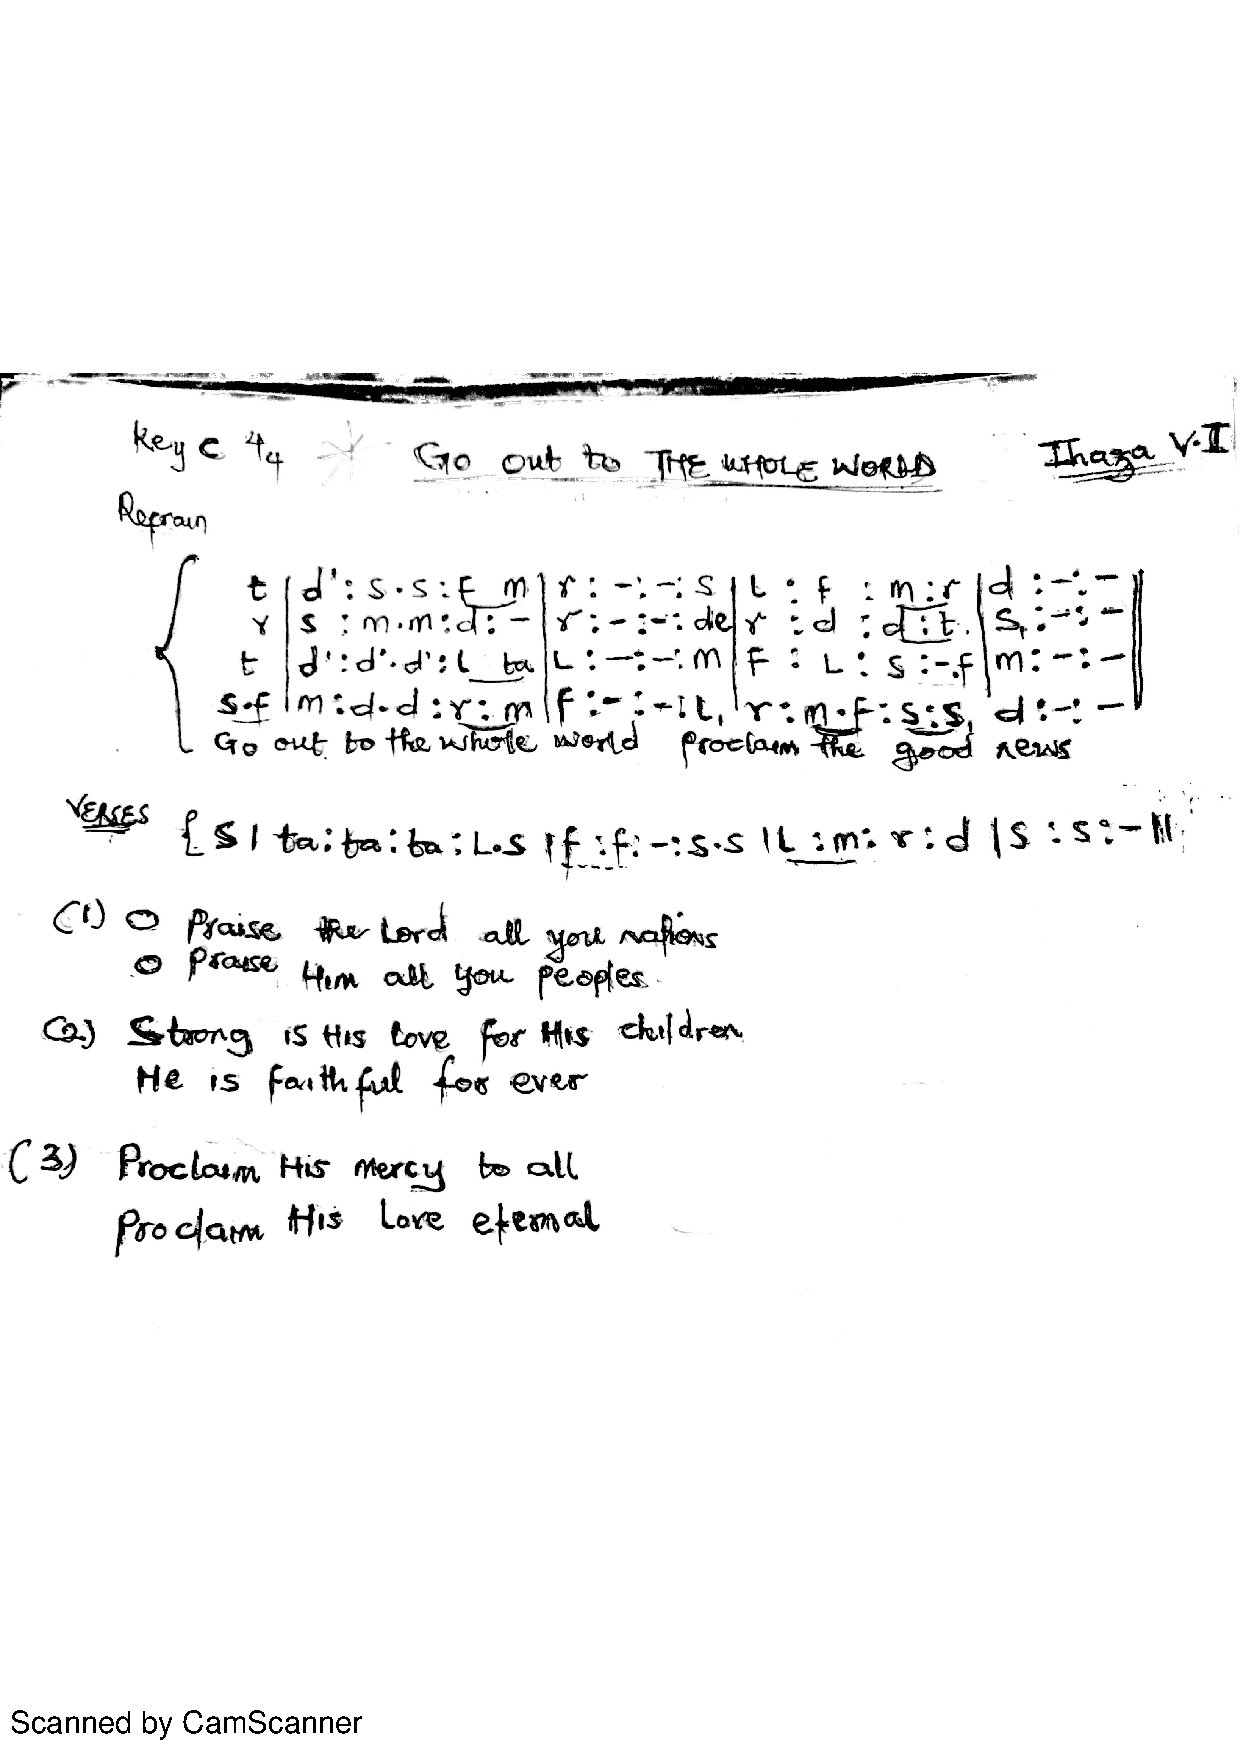 Key C 4/4 GO OUT to THE WHOLE WORLD Ihaza V.II
Refrain
t | d' : s.s : f m | r : - : - : s | l : f : m : r | d : - : - ||
r | s : m.m : d : - | r : - : - : de | r : d : d : t, | s, : - : - ||
t | d' : d'.d' : l ta | l : - : - : m | f : l : s : -.f | m : - : - ||
s.f | m : d.d : r : m | f : - : - : l, | r : m.f : s : s, d : - : - ||
Go out to the whole world proclaim the good news
VERSES { s | ta : ta : ta : l.s | f : f : - : s.s | l : m : r : d | s : s : - ||
(1) O Praise the Lord all you nations
O Praise Him all you peoples.
(2) Strong is His love for His children
He is faithful for ever
(3) Proclaim His Mercy to all
Proclaim His Love eternal
Scanned by CamScanner